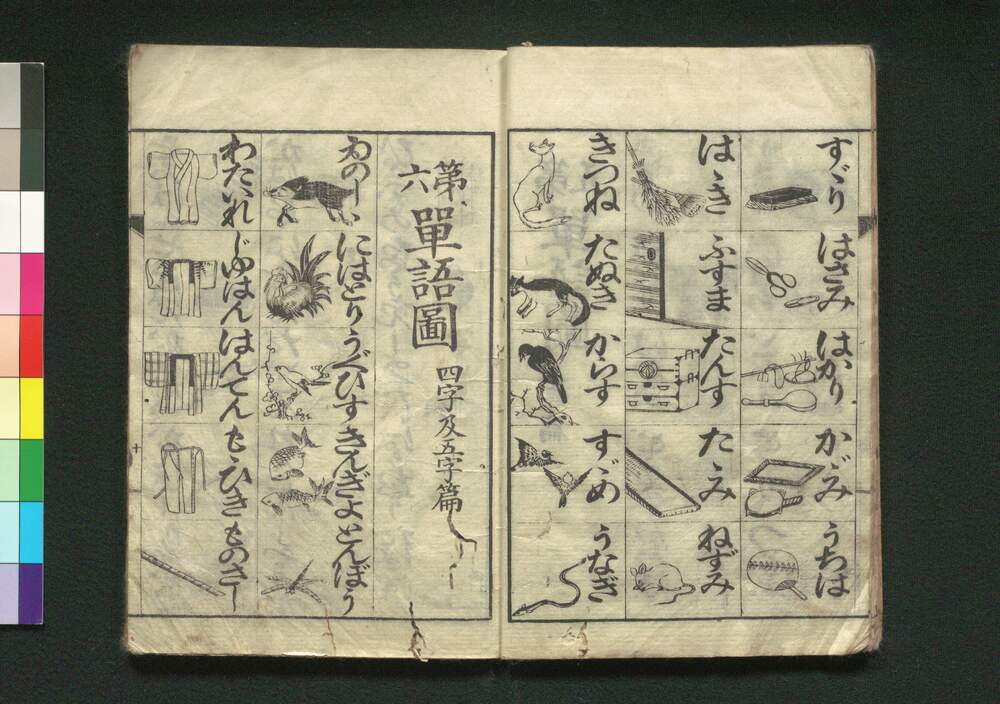 すゞり はさみ はかり かゞみ うちは
はゝき ふすま たんす たゝみ ねずみ
きつね たぬき からす すゞめ うなぎ
第六 單語圖 四字及五字篇
ゐのしゝ にはとり うぐひす きんぎよ とんばう
わたいれ じゆはん はんてん もゝひき ものさし